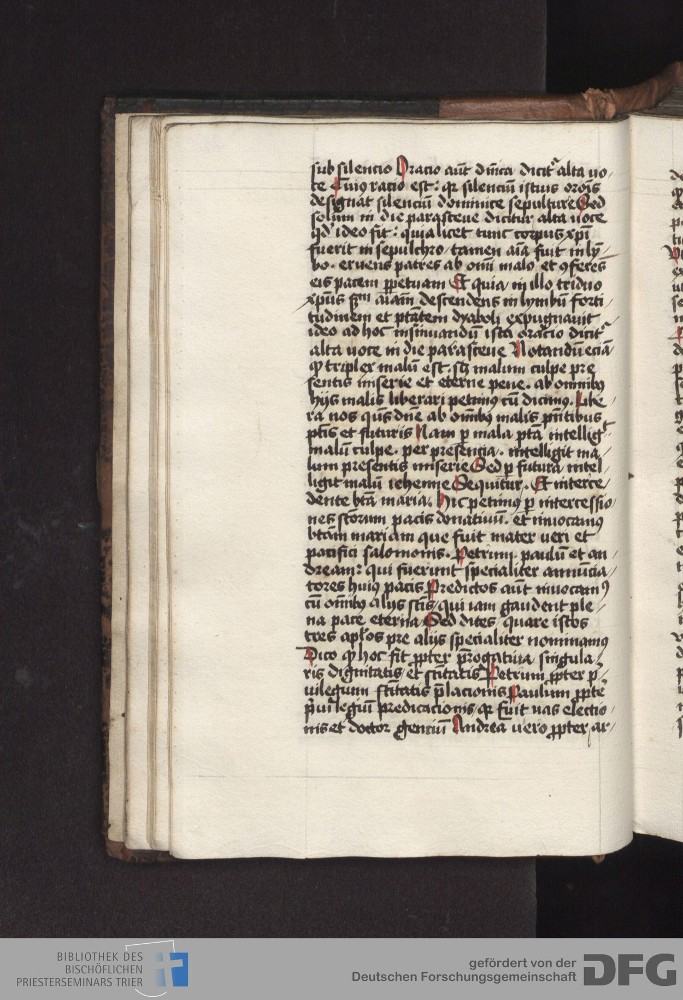 sub silencio Oracio aūt dn̄ica dicit᷑ alta uo
ce Cuiꝰ racio est: qr silenciū istius orōis
designat silenciū dominice sepulture Sed
solum in die parasceue dicitur alta uoce
qd᷑ ideo fit: quia licet tunc corpus xp̄i
fuerit in sepulchro tamen aīa fuit in lym
bo. eruens patres ab om̄i malo et ꝯferēs
eis pacem ꝑpetuam Et quia in illo triduo
xp̄us sm̄ aīam descendens in lymbū forti
tudinem et ptātem dyaboli expugnauit
ideo ad hoc insinuandū ista oracio dicit᷑
alta uoce in die parasceue Notandū eciā
ꝙ triplex malū est. scꝫ malum culpe pre
sentis miserie et eterne pene. ab omnibꝰ
hijs malis liberari petimꝰ cū dicimꝰ. Libe
ra nos qūs dn̄e ab om̄ibꝰ malis pn̄tibus
ptīs et futuris Nam ꝑ mala ptā intelligit᷑
malū culpe. per presencia. intelligit᷑ ma
lum presentis miserie Sed ꝑ futura intel
ligit᷑ malū iehenne Sequitur. Et interce
dente btā maria. Hic petimꝰ ꝑ intercessio
nes sctorum pacis donatiuū. et inuocamꝰ
btām mariam que fuit mater ueri et
pacifici salomonis. Petrum. paulū et an
dream: qui fuerunt specialiter annuncia
tores huiꝰ pacis Predictos aūt inuocamꝰ
cū om̄ibꝰ alijs sctīs qui iam gaudent ple
na pace eterna Sed dices quare istos
tres aplos pre alijs specialiter nominamꝰ
Dico ꝙ hoc fit ꝓpter prerogatiua singula
ris dignitatis et sctitatis Petrum ꝓpter p̄
uilegium sctitatis p̄lacionis Paulum ꝓpt̄
p̄uilegiū predicacionis qr fuit uas electio
nis et doctor genciū Andrea uero ꝓpter ar
BIBLIOTHEK DES
BISCHÖFLICHEN
PRIESTERSEMINARS TRIER
gefördert von der
Deutschen Forschungsgemeinschaft
DFG